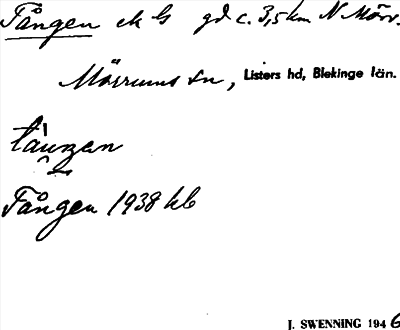 Tången ek ls gd c. 3,5 km N Mörr.
Mörrums sn, Listers hd, Blekinge län.
Tången 1938 kb
J. SWENNING 1946